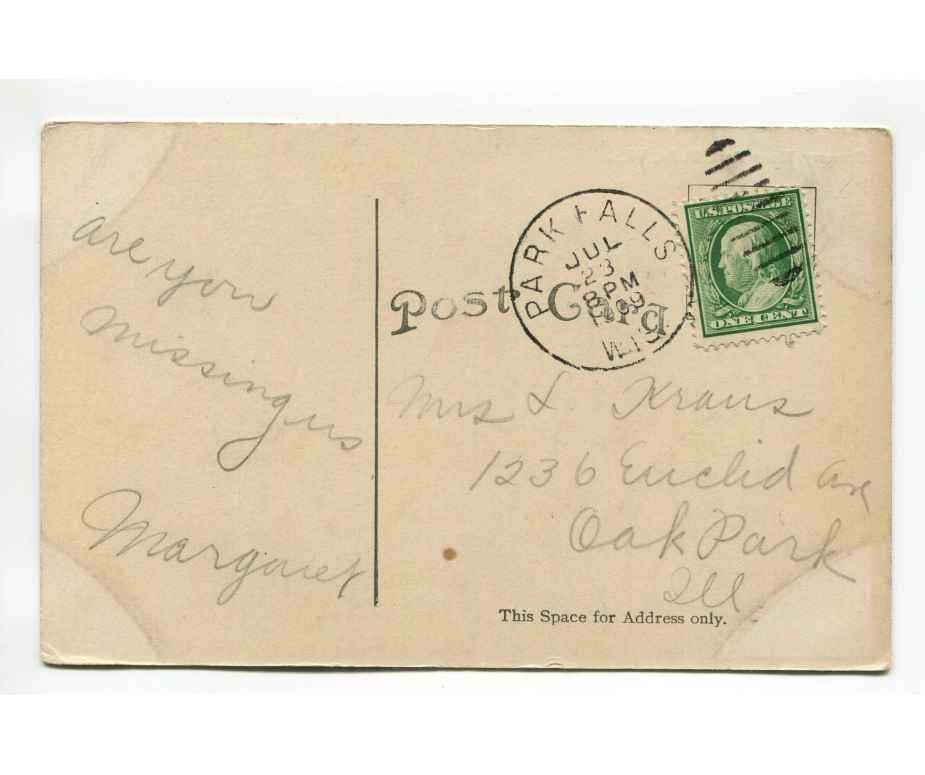 are you
missing us
Margaret
Post Card
PARK FALLS
JUL
23
8 PM
1909
WIS
U.S. POSTAGE
ONE CENT
Mrs L. Kraus
1236 Euclid Ave
Oak Park
Ill
This Space for Address only.